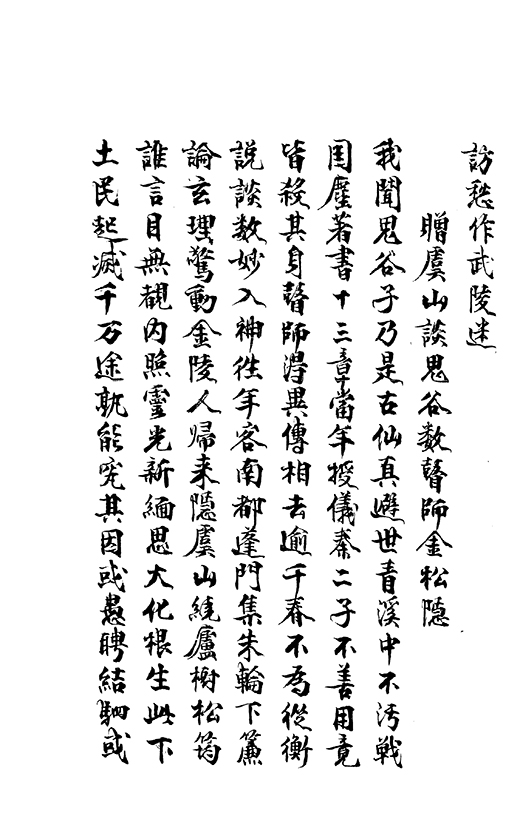 訪愁作武陵迷
贈虞山談鬼谷数瞽師金松隱
我聞鬼谷子乃是古仙真避世青溪中不污戰
国塵著書十三章當年授儀秦二子不善用竟
皆殺其身瞽師得異傳相去逾千春不為從衡
說談数妙入神往年客南都蓬門集朱輪下簾
論玄理驚動金陵人歸来隱虞山繞廬樹松筠
誰言目無覩内照靈光新緬思大化根生此下
土民起滅千万途孰能究其因或愚聘結駟或